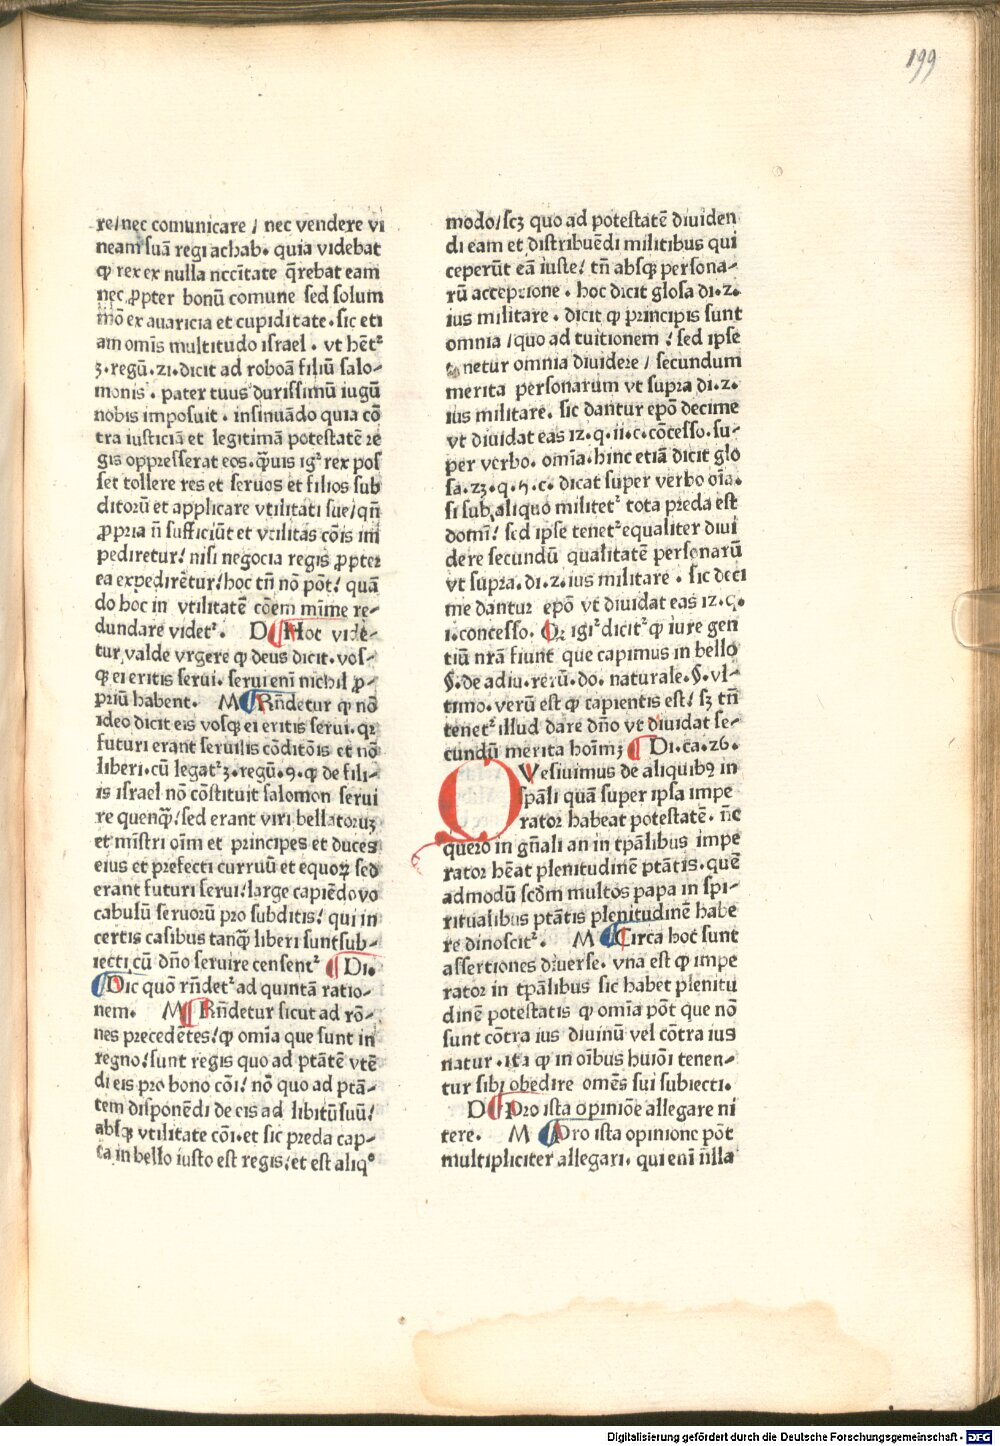 199
re/nec comunicare / nec vendere vi
neam suā regi achab. quia videbat
ꝙ rex ex nulla nccītate q̄rebat eam
nec ꝓpter bonū comune sed solum
mō ex auaricia et cupiditate. sic eti
am omīs multitudo israel . vt hēt᷑
3. regū. zi. dicit ad roboā filiū salo⸗
monis . pater tuus durissimū iugū
nobis imposuit . insinuādo quia cō
tra iusticiā et legitimā potestatē re
gis oppresserat eos. q̄uis ig᷑ rex pos
set tollere res et seruos et filios sub
ditorū et applicare vtilitati sue/qn̄
ꝓpria n̄ sufficiūt et vtilitas cōis im
pediretur! nisi negocia regis ꝓpter
ea expedirētur! hoc tn̄ nō pōt! quā
do hoc in vtilitatē cōem mīme re⸗
dundare videt᷑. D Hoc vidē⸗
tur valde vrgere ꝙ deus dicit. vos⸗
qꝫ ei eritis serui. serui enī nichil ꝓ⸗
priū habent. M Rn̄detur ꝙ nō
ideo dicit eis vosqꝫ ei eritis serui. qꝛ
futuri erant seruilis cōditōis et nō
liberi. cū legat᷑ 3. regū. 9. ꝙ de fili⸗
is israel nō cōstituit salomon serui
re quenqꝫ! sed erant viri bellatoruꝫ
et mīstri oīm et principes et duces
eius et prefecti curruū et equoꝝ sed
erant futuri serui! large capiēdo vo
cabulū seruorū pro subditis! qui in
certis casibus tanqꝫ liberi sunt sub⸗
iecti cū dn̄o seruire censent᷑ Di.
Dic quō rn̄det᷑ ad quintā ratio⸗
nem. M Rn̄detur sicut ad rō⸗
nes precedētes! ꝙ omīa que sunt in
regno! sunt regis quo ad ptātē vtē
di eis pro bono cōi! nō quo ad ptā⸗
tem disponēdi de eis ad libitū suū!
absqꝫ vtilitate cōi. et sic preda cap⸗
ta in bello iusto est regis! et est aliqº
modo/scꝫ quo ad potestatē diuiden
di eam et distribuēdi militibus qui
ceperūt eā iuste! tn̄ absqꝫ persona⸗
rū acceptione . hoc dicit glosa di. z.
ius militare . dicit ꝙ principis sunt
omnia / quo ad tuitionem ! sed ipse
tenetur omnia diuidere / secundum
merita personarum vt supra di. z.
ius militare. sic dantur epō decime
vt diuidat eas 12. q. ii. c. cōcesso. su⸗
per verbo. omīa. hinc etiā dicit glo
sa. z3. q. 5. c. dicat super verbo oīa.
si sub aliquo militet᷑ tota preda est
domī! sed ipse tenet᷑ equaliter diui
dere secundū qualitatē personarū
vt supra. di. z. ius militare . sic deci
me dantur epō vt diuidat eas 12. q.
i. concesso. Qꝛ igī᷑ dicit᷑ ꝙ iure gen
tiū nr̄a fiunt que capimus in bello
§. de adiu. rerū. do. naturale. §. vl⸗
timo. verū est ꝙ capientis est! sꝫ tn̄
tenet᷑ illud dare dn̄o vt diuidat se⸗
cundū merita hoīmꝫ Di. ca. 26.
Qvesiuimus de aliquibꝰ in
spāli quā super ipsa impe
rator habeat potestatē. n̄c
quero in gn̄ali an in tpālibus impe
rator hēat plenitudinē ptātis. quē
admodū scd̄m multos papa in spi⸗
ritualibus ptātis plenitudinē habe
re dinoscit᷑. M Circa hoc sunt
assertiones diuerse. vna est ꝙ impe
rator in tpālibus sic habet plenitu
dinē potestatis ꝙ omīa pōt que nō
sunt cōtra ius diuinū vel cōtra ius
natur . ita ꝙ in oībus huiōi tenen⸗
tur sibi obedire omēs sui subiecti.
D Pro ista opiniōe allegare ni
tere. M Pro ista opinione pōt
multipliciter allegari. qui enī īlla
Digitalisierung gefördert durch die Deutsche Forschungsgemeinschaft - DFG